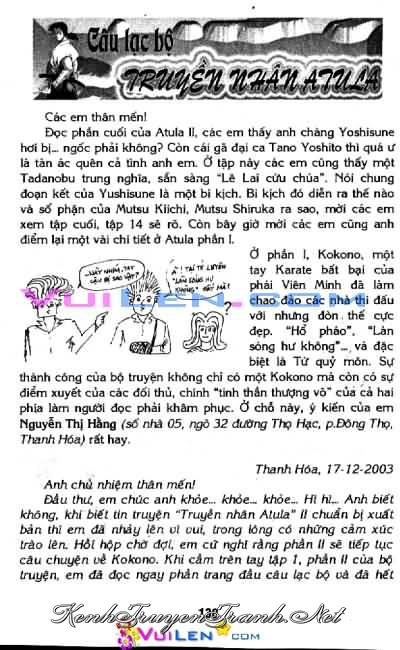 Câu lạc bộ
TRUYỀN NHÂN ATULA
Các em thân mến!
Đọc phần cuối của Atula II, các em thấy anh chàng Yoshisune
hơi bị... ngốc phải không? Còn cái gã đại ca Tano Yoshito thì quá ư
là tàn ác quên cả tình anh em. Ở tập này các em cũng thấy một
Tadanobu trung nghĩa, sẵn sàng "Lê Lai cứu chúa". Nói chung
đoạn kết của Yushisune là một bi kịch. Bi kịch đó diễn ra thế nào
và số phận của Mutsu Kiichi, Mutsu Shiruka ra sao, mời các em
xem tập cuối, tập 14 sẽ rõ. Còn bây giờ mời các em cũng anh
điểm lại một vài chi tiết ở Atula phần I.
Ở phần I, Kokono, một
tay Karate bất bại của
phái Viên Minh đã làm
chao đảo các nhà thi đấu
với những đòn thế cực
đẹp. "Hổ pháo", "Làn
sóng hư không"... và đặc
biệt là Tứ quỷ môn. Sự
...MÀY NHÍM, TAY
CẬU BỊ SAO VẬY?
À! TẠI TỚ LUYỆN
"LÀN SÓNG HƯ
KHÔNG"
?
thành công của bộ truyện không chỉ có một Kokono mà còn có sự
điểm xuyết của các đối thủ, chính "tinh thần thượng võ" của cả hai
phía làm người đọc phải khâm phục. Ở chỗ này, ý kiến của em
Nguyễn Thị Hằng (số nhà 05, ngõ 32 đường Thọ Hạc, p.Đông Thọ,
Thanh Hóa) rất hay.
Thanh Hóa, 17-12-2003
Anh chủ nhiệm thân mến!
Đầu thư, em chúc anh khỏe... khỏe... khỏe... Hi hi... Anh biết
không, khi biết tin truyện "Truyền nhân Atula" II chuẩn bị xuất
bản thì em đã nhảy lên vì vui, trong lòng có những cảm xúc
trào lên. Hồi hộp chờ đợi, em cứ nghĩ rằng phần II sẽ tiếp tục
câu chuyện về Kokono. Khi cầm trên tay tập 1, phần II của bộ
truyện, em đã đọc ngay phần trang đầu câu lạc bộ và đã hết
VUILEN.COM
KenhTruyenTranh.Net
VUILEN.COM